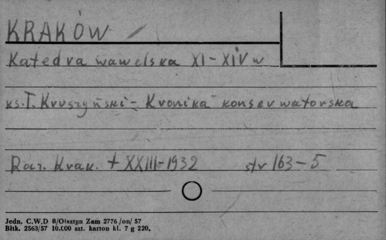 KRAKÓW
Katedra wawelska XI-XIV w
ks. T. Kruszyński - Kronika konserwatorska
Rocz. Krak. t XXIII-1932 str 163-5
Jedn. C.W.D 8/Olsztyn Zam 2776/on/57
Bltk. 2563/57 10.000 szt. karton kl. 7 g 220,